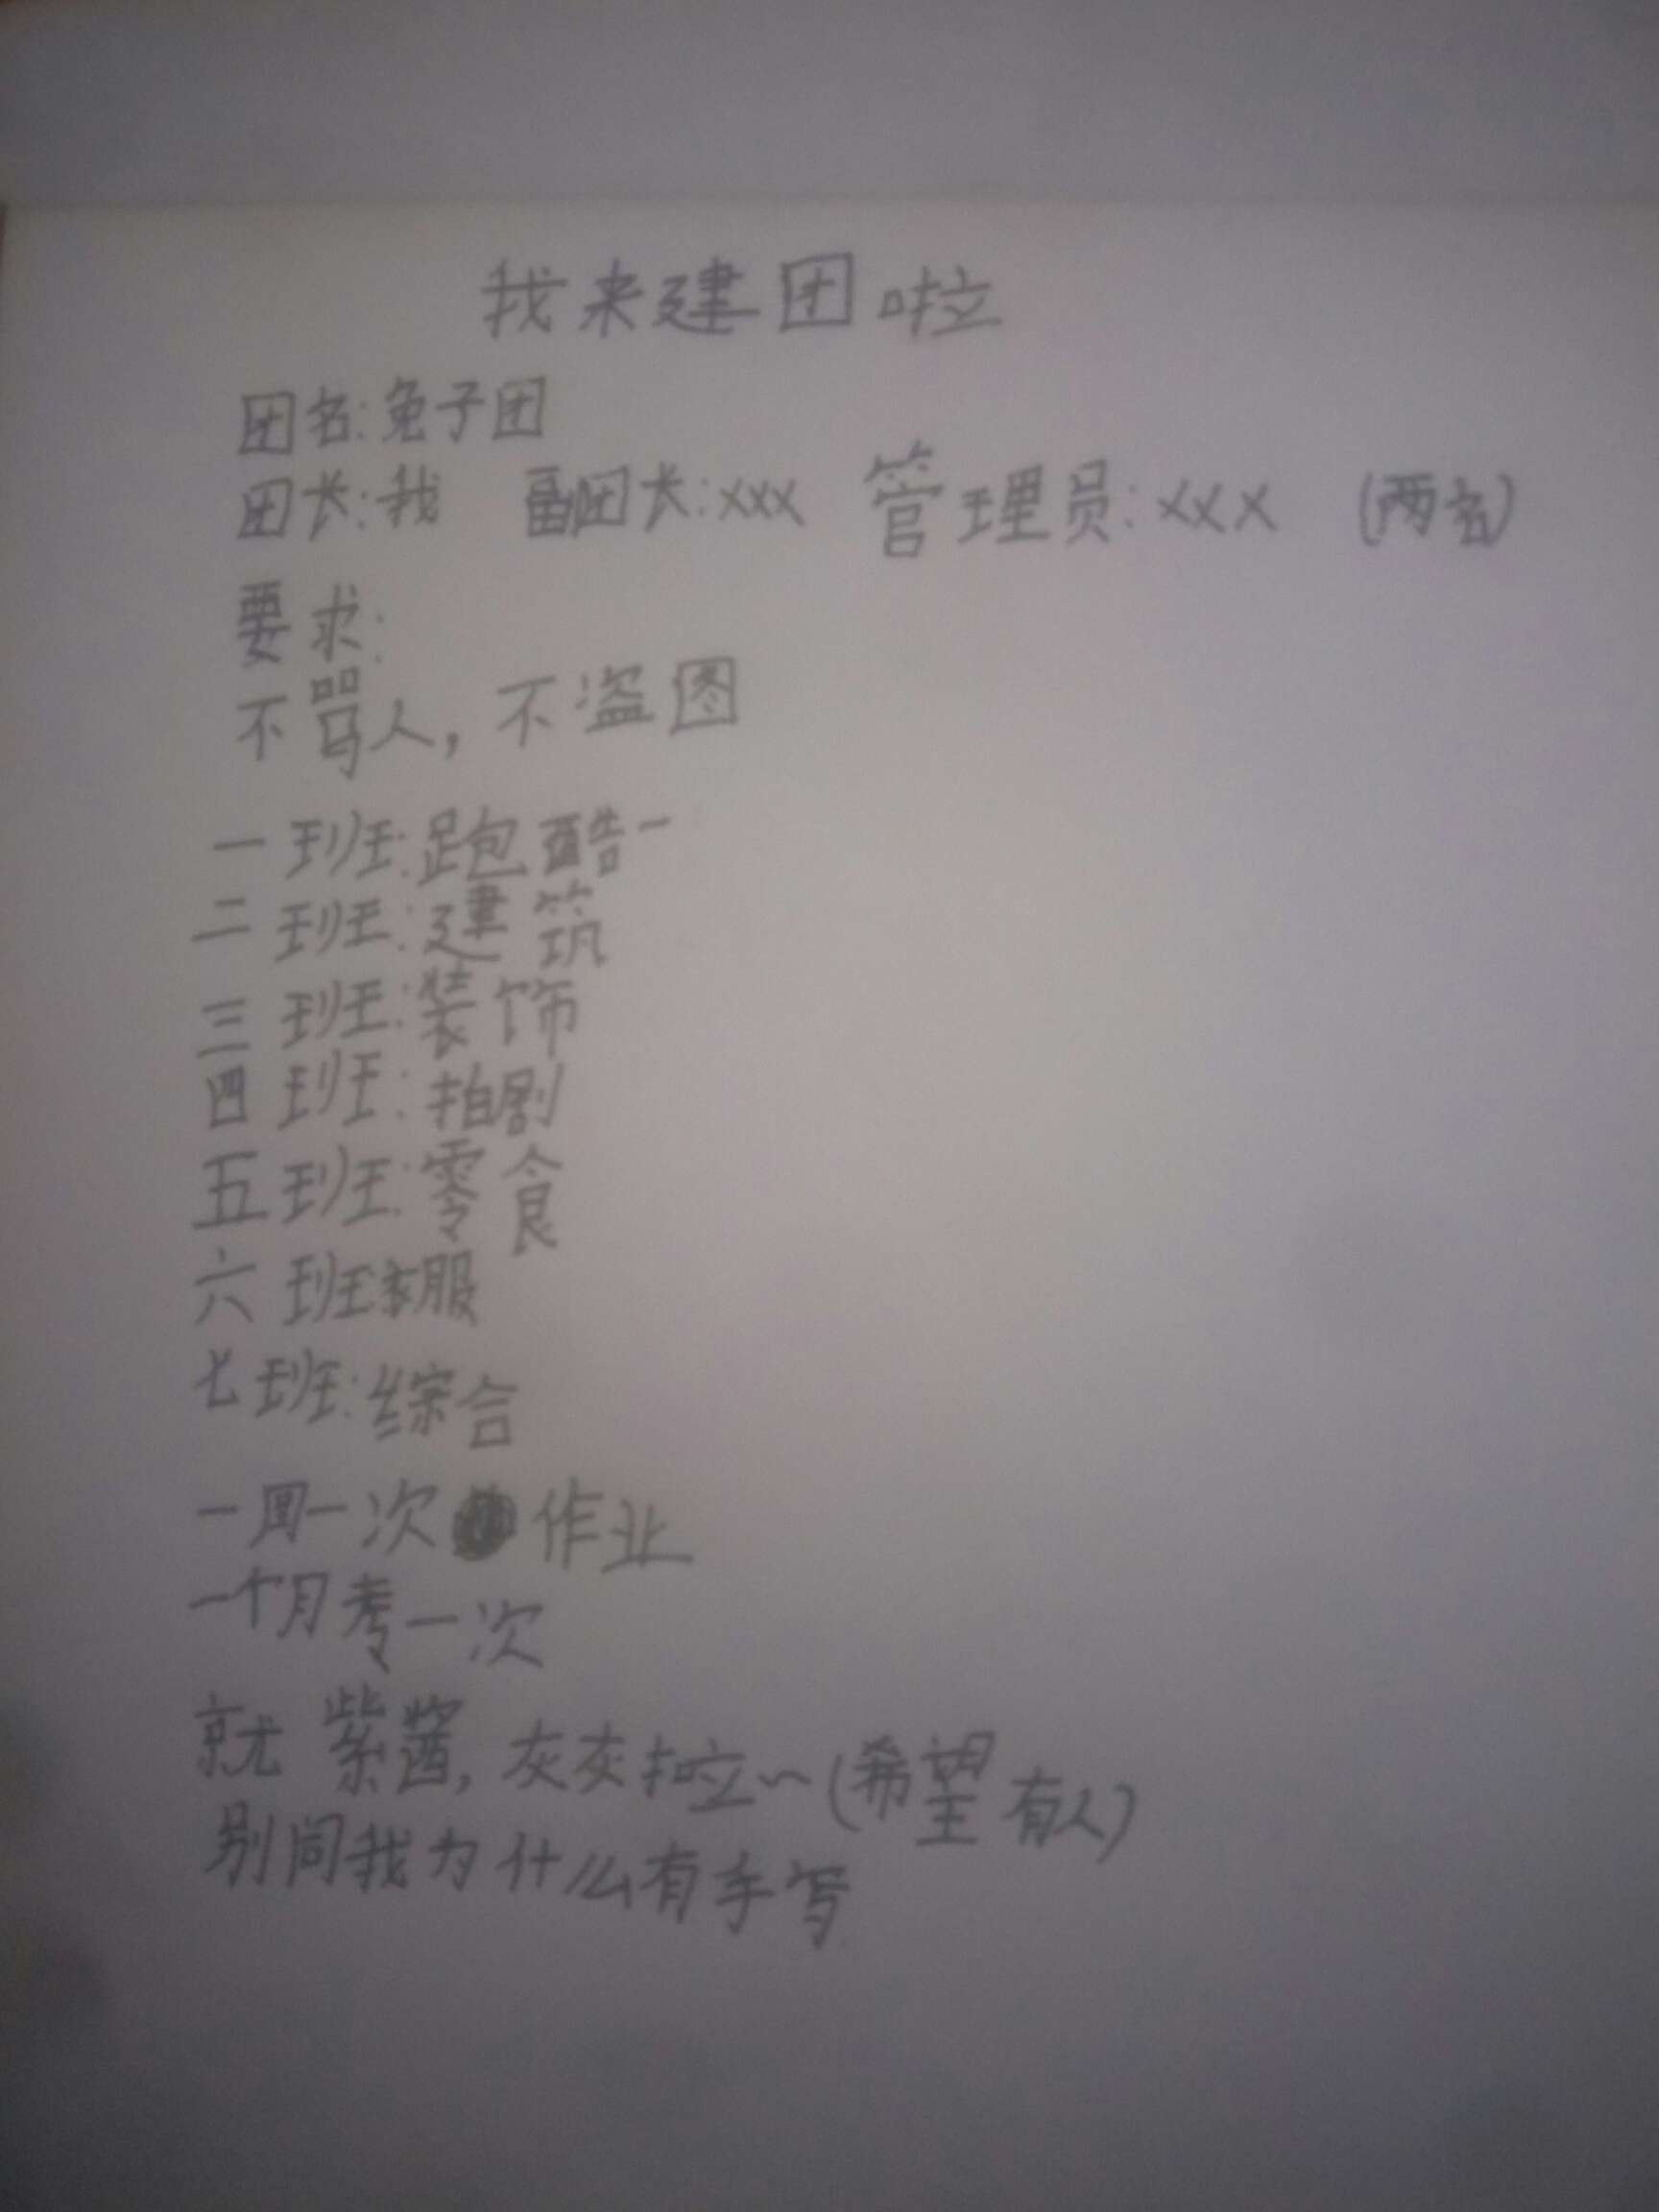 我来建团啦
团名:兔子团
团长:我 副团长:xxx 管理员:xxx (两名)
要求:
不骂人,不盗图
一班:跑酷
二班:建筑
三班:装饰
四班:拍剧
五班:零食
六班衣服
七班:综合
一周一次作业
一个月考一次
就 紫酱,灰灰拉~(希望有人)
别问我为什么有手写